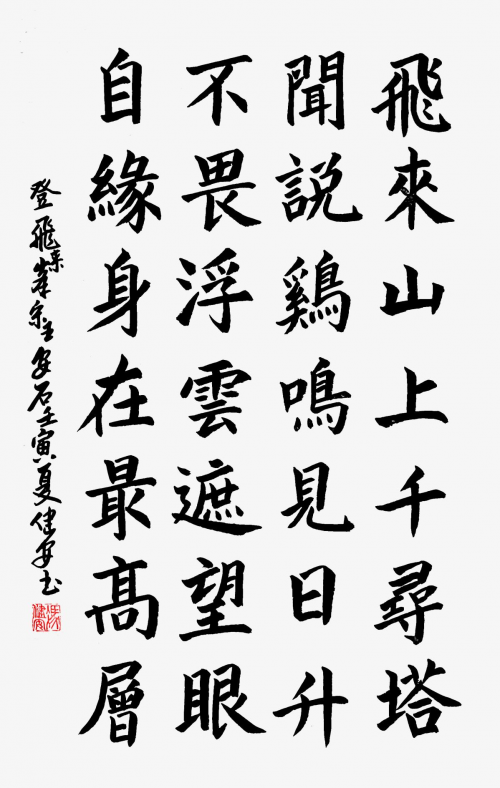 飛來山上千尋塔
聞説鷄鳴見日升
不畏浮雲遮望眼
自緣身在最高層
登飛來峯宋王安石壬寅夏健安書